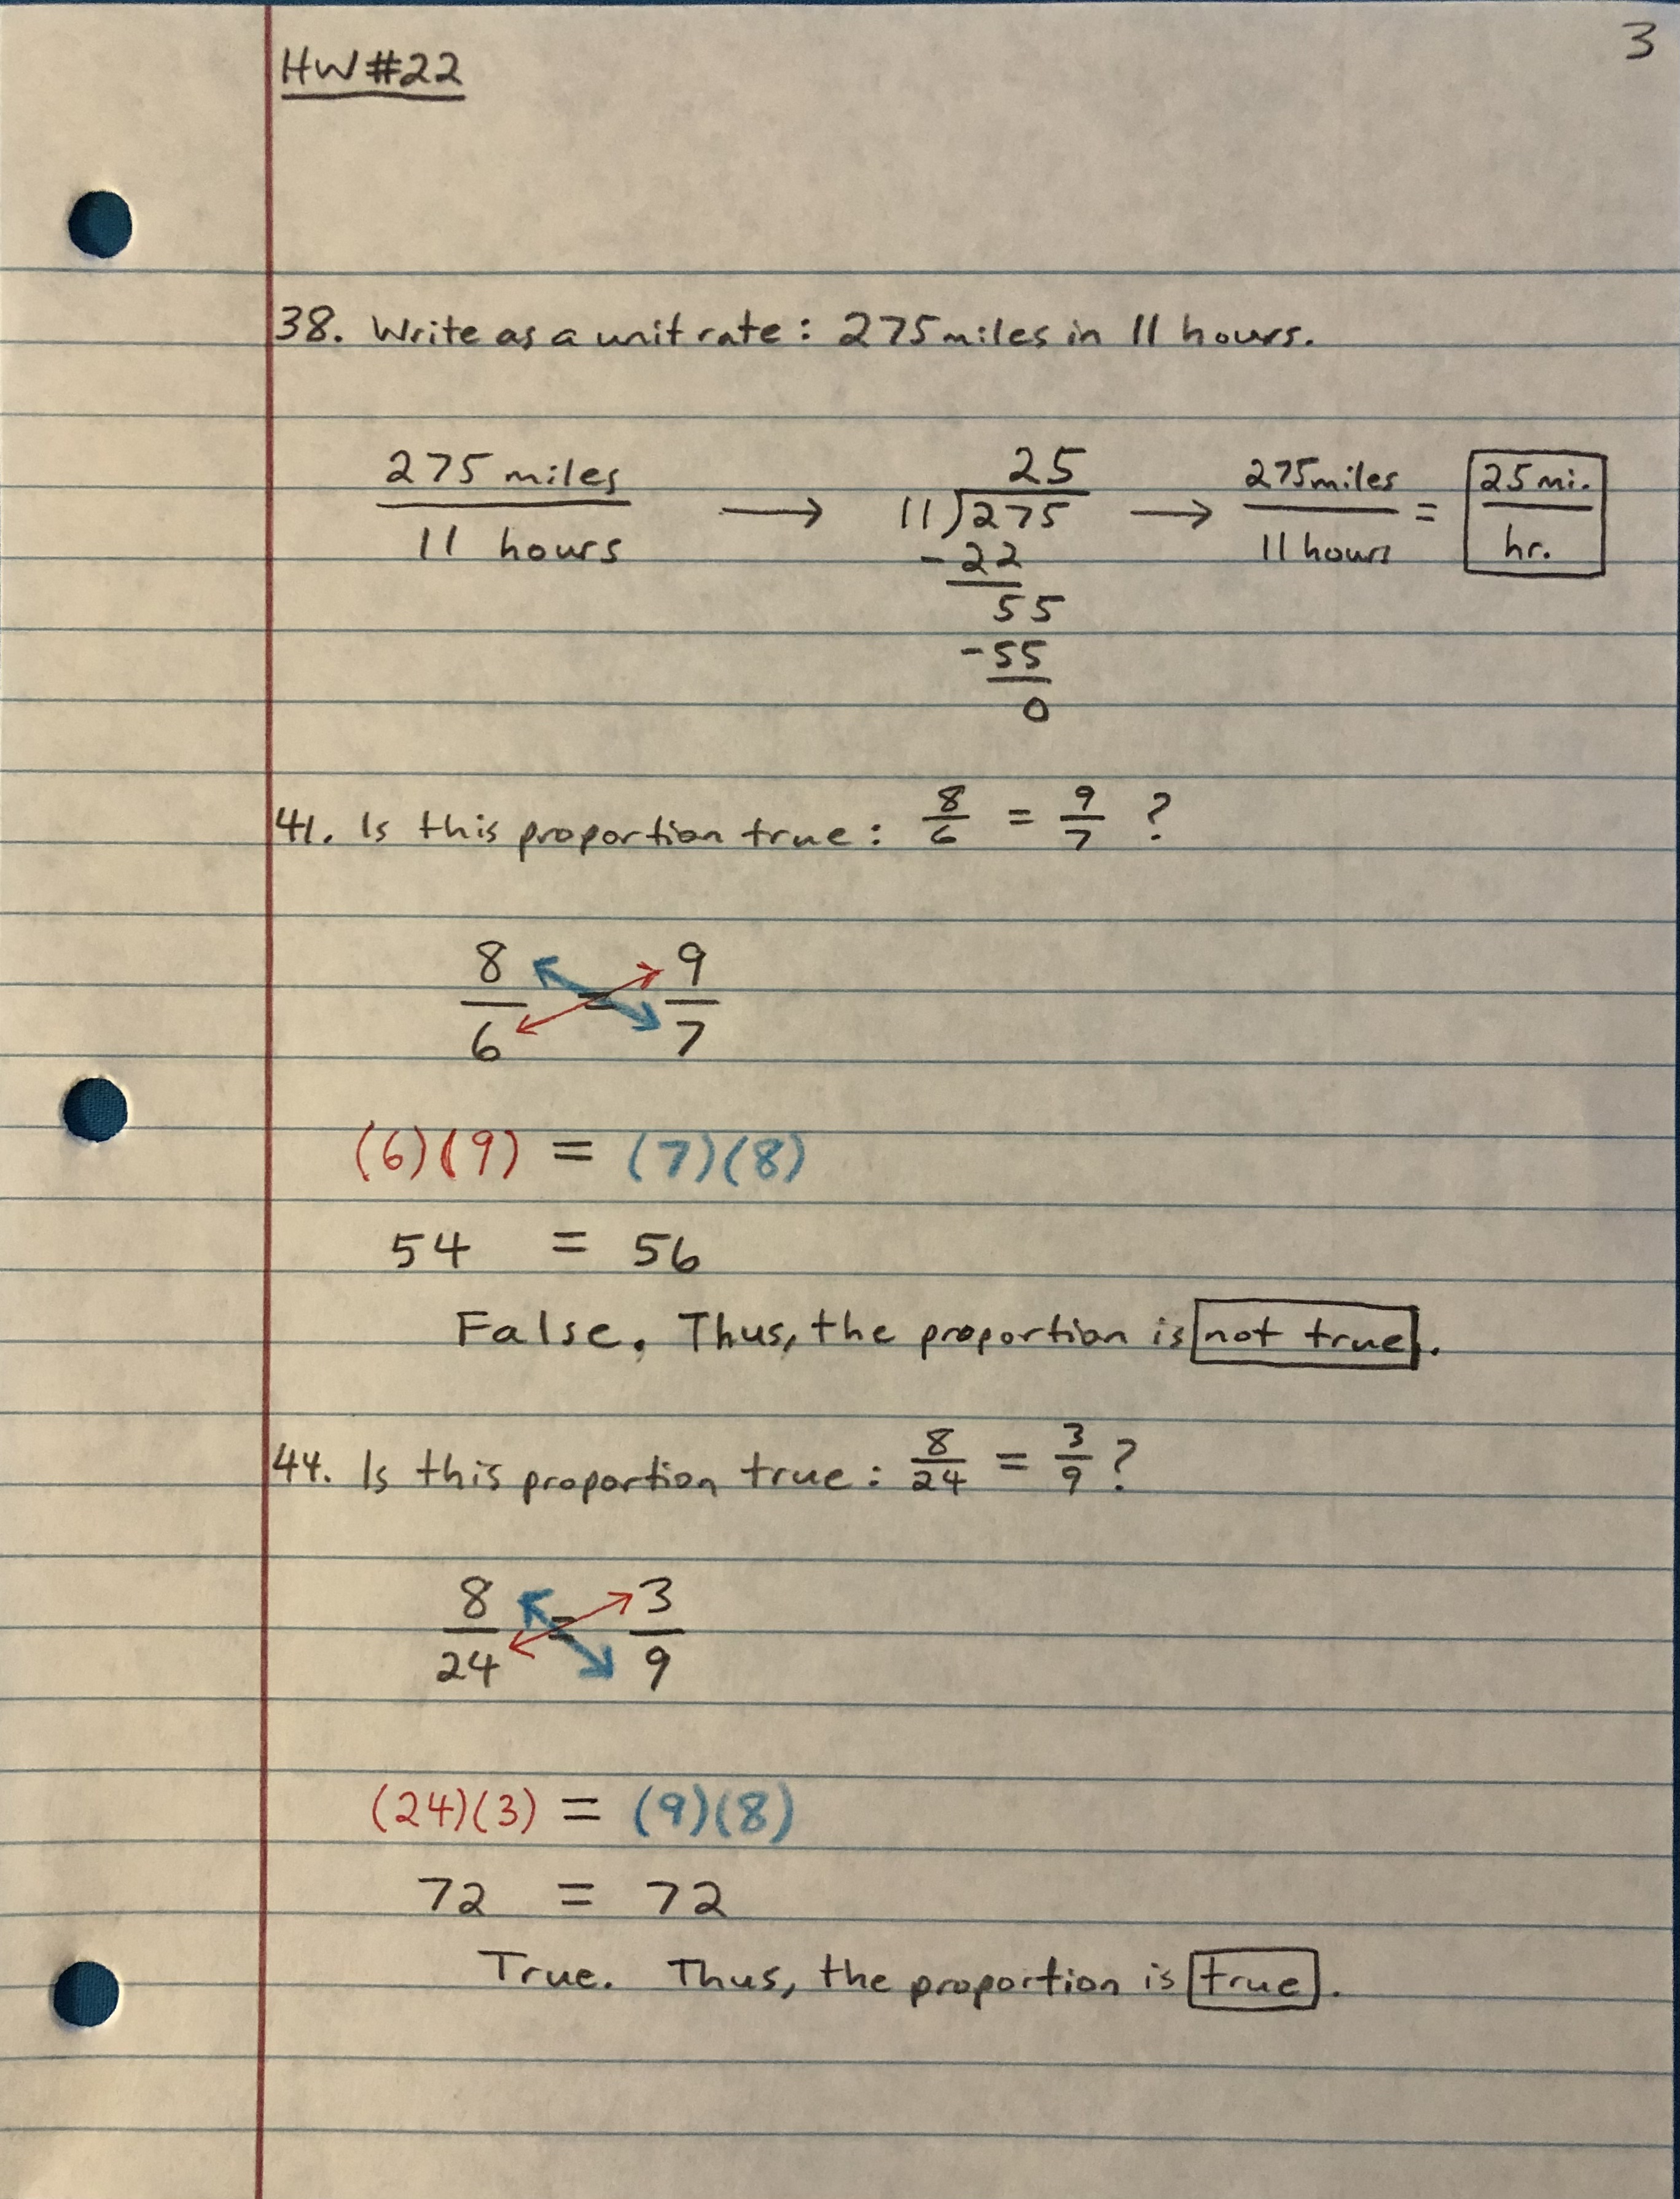 HW #22
3
38. Write as a unit rate: 275 miles in 11 hours.
275 miles / 11 hours → 11)275 25 → 275 miles / 11 hours = 25 mi. / hr.
-22
55
-55
0
41. Is this proportion true: 8/6 = 9/7 ?
8/6 = 9/7
(6)(9) = (7)(8)
54 = 56
False. Thus, the proportion is not true.
44. Is this proportion true: 8/24 = 3/9 ?
8/24 = 3/9
(24)(3) = (9)(8)
72 = 72
True. Thus, the proportion is true.